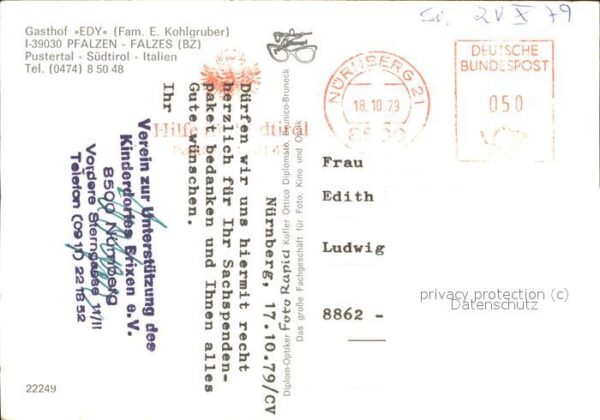 Gasthof »EDY« (Fam. E. Kohlgruber)
I-39030 PFALZEN - FALZES (BZ)
Pustertal - Südtirol - Italien
Tel. (0474) 8 50 48
NÜRNBERG 21
18.10.79
8500
DEUTSCHE
BUNDESPOST
050
Nürnberg, 17.10.79/cv
Dürfen wir uns hiermit recht
herzlich für Ihr Sachspenden-
paket bedanken und Ihnen alles
Gute wünschen.
Ihr
Verein zur Unterstützung des
Kinderdorfes Brixen e. V.
8500 Nürnberg
Vordere Sterngasse 11/II
Telefon (0911) 22 18 52
Diplom-Optiker Foto Rapid Kofler Ottico Diplomato, Brunico-Bruneck
Das große Fachgeschäft für Foto, Kino und Optik
Frau
Edith
Ludwig
8862 -
privacy protection (c)
Datenschutz
22249